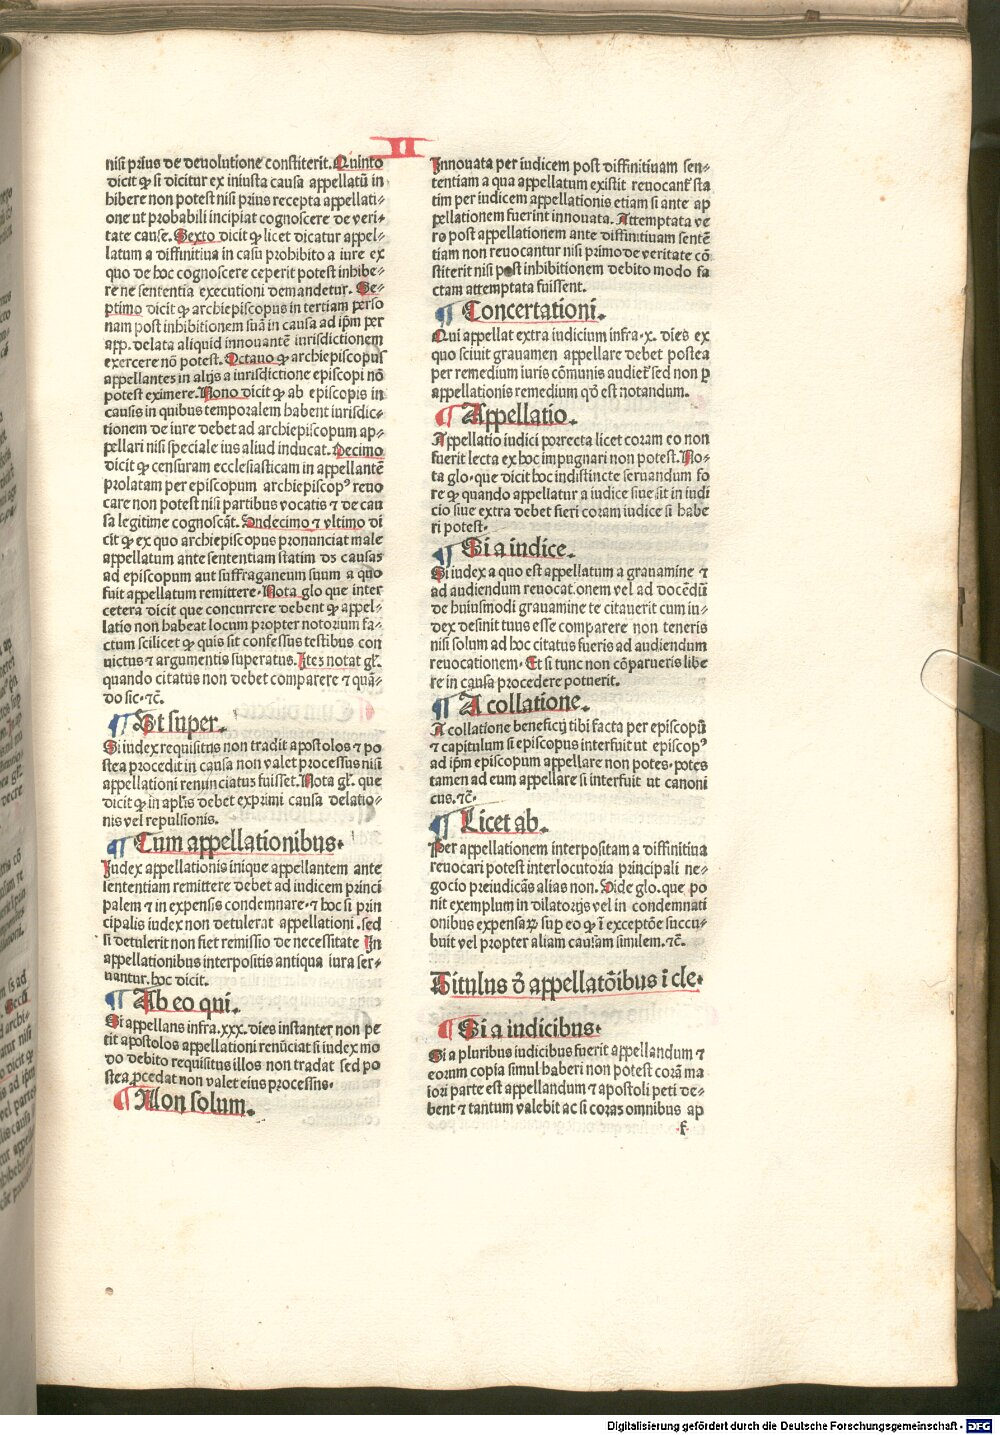 II
nisi prius de deuolutione constiterit. Quinto
dicit ꝙ si dicitur ex iniusta causa appellatū in
hibere non potest nisi prius recepta appellati⸗
one ut probabili incipiat cognoscere de veri⸗
tate cause. Sexto dicit ꝙ licet dicatur appel⸗
latum a diffinitiua in casu prohibito a iure ex
quo de hoc cognoscere ceperit potest inhibe⸗
re ne sententia executioni demandetur. Se⸗
ptimo dicit ꝙ archiepiscopus in tertiam perso
nam post inhibitionem suā in causa ad ip̄m per
app. delata aliquid innouantē iurisdictionem
exercere nō potest. Octauo ꝙ archiepiscopus
appellantes in alijs a iurisdictione episcopi nō
potest eximere. Nono dicit ꝙ ab episcopis in
causis in quibus temporalem habent iurisdic⸗
tionem de iure debet ad archiepiscopum ap⸗
pellari nisi speciale ius aliud inducat. Decimo
dicit ꝙ censuram ecclesiasticam in appellantē
prolatam per episcopum archiepiscopꝰ reuo
care non potest nisi partibus vocatis ⁊ de cau
sa legitime cognoscāt. Undecimo ⁊ vltimo di
cit ꝙ ex quo archiepiscopus pronunciat male
appellatum ante sententiam statim ds causas
ad episcopum aut suffraganeum suum a quo
fuit appellatum remittere. Nota glo que inter
cetera dicit que concurrere debent ꝙ appel⸗
latio non habeat locum propter notorium fa⸗
ctum scilicet ꝙ quis sit confessus testibus con
uictus ⁊ argumentis superatus. Itez notat gl̄.
quando citatus non debet comparere ⁊ quā⸗
do sic. ⁊c̄.
¶ Et super.
Si iudex requisitus non tradit apostolos ⁊ po
stea procedit in causa non valet processus nisi
appellationi renunciatum fuisset. Nota gl̄. que
dicit ꝙ in apl̄is debet exprimi causa delatio⸗
nis vel repulsionis.
¶ Cum appellationibus.
Iudex appellationis inique appellantem ante
sententiam remittere debet ad iudicem princi
palem ⁊ in expensis condemnare. ⁊ hoc si prin
cipalis iudex non detulerat appellationi. sed
si detulerit non fiet remissio de necessitate In
appellationibus interpositis antiqua iura ser⸗
uantur. hoc dicit.
¶ Ab eo qui.
Si appellans infra .xxx. dies instanter non pe
tit apostolos appellationi renūciat si iudex mo
do debito requisitus illos non tradat sed po
stea ꝓcedat non valet eius processus.
¶ Non solum.
Innouata per iudicem post diffinitiuam sen⸗
tentiam a qua appellatum existit reuocant̄ sta
tim per iudicem appellationis etiam si ante ap
pellationem fuerint innouata. Attemptata ve
ro post appellationem ante diffinitiuam sentē
tiam non reuocantur nisi primo de veritate cō
stiterit nisi post inhibitionem debito modo fa
ctam attemptata fuissent.
¶ Concertationi.
Qui appellat extra iudicium infra .x. dies ex
quo sciuit grauamen appellare debet postea
per remedium iuris cōmunis audiet̄ sed non ꝑ
appellationis remedium qd̄ est notandum.
¶ Appellatio.
Appellatio iudici porrecta licet coram eo non
fuerit lecta ex hoc impugnari non potest. No⸗
ta glo. que dicit hoc indistincte seruandum fo
re ꝙ quando appellatur a iudice siue sit in iudi
cio siue extra debet fieri coram iudice si habe
ri potest.
¶ Si a iudice.
Si iudex a quo est appellatum a grauamine ⁊
ad audiendum reuocationem vel ad docēdū
de huiusmodi grauamine te citauerit cum iu⸗
dex desinit tuus esse comparere non teneris
nisi solum ad hoc citatus fueris ad audiendum
reuocationem. Et si tunc non cōparueris libe
re in causa procedere potuerit.
¶ A collatione.
A collatione beneficij tibi facta per episcopū
⁊ capitulum si episcopus interfuit ut episcopꝰ
ad ip̄m episcopum appellare non potes. potes
tamen ad eum appellare si interfuit ut canoni
cus. ⁊c̄.
¶ Licet ab.
Per appellationem interpositam a diffinitiua
reuocari potest interlocutoria principali ne⸗
gocio preiudicās alias non. Vide glo. que po
nit exemplum in dilatorijs vel in condemnati
onibus expensaꝝ sup eo ꝙ ī exceptōe succu⸗
buit vel propter aliam causam similem. ⁊c̄.
Titulus d̄ appellatōibus i cle.
¶ Si a iudicibus.
Si a pluribus iudicibus fuerit appellandum ⁊
eorum copia simul haberi non potest corā ma
iori parte est appellandum ⁊ apostoli peti de⸗
bent ⁊ tantum valebit ac si coras omnibus ap
.f.
Digitalisierung gefördert durch die Deutsche Forschungsgemeinschaft - DFG